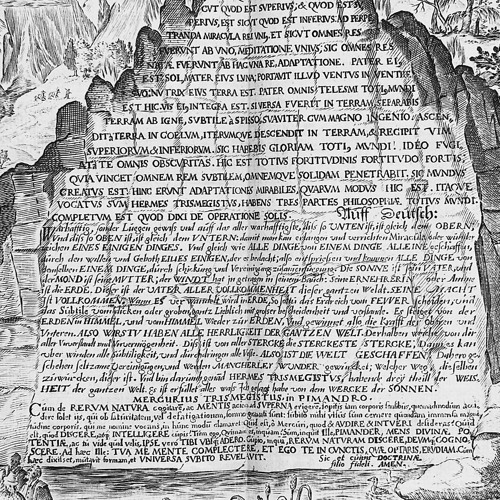 CUT QUOD EST SUPERIUS; & QUOD EST SU
PERIUS, EST SICUT QUOD EST INFERIUS. AD PERPE
TRANDA MIRACULA REI UNI, ET SICUT OMNES RES
FUERUNT AB UNO, MEDITATIONE UNIUS, SIC OMNES RES
NATÆ FUERUNT AB HAC UNA RE, ADAPTATIONE. PATER EJ,
EST SOL, MATER EIUS LUNA; PORTAVIT ILLUD VENTUS IN VENTRE
SUO: NUTRIX EIUS TERRA EST. PATER OMNIS TELESMI TOTI, MUNDI
EST HIC. VIS EJ, INTEGRA EST. SI VERSA FUERIT IN TERRAM, SEPARABIS
TERRAM AB IGNE, SUBTILE à SPISSO, SUAVITER CUM MAGNO INGENIO. ASCEN,
DIT à TERRA IN COELUM, ITERUMQUE DESCENDIT IN TERRAM, & RECIPIT VIM
SUPERIORUM & INFERIORUM. SIC HABEBIS GLORIAM TOTI, MUNDI. IDEO FUGI,
AT à TE OMNIS OBSCURITAS. HIC EST TOTIUS FORTITUDINIS FORTITUDO FORTIS;
QUIA VINCET OMNEM REM SUBTILEM, OMNEMQUE SOLIDAM PENETRABIT. SIC MUNDUS
CREATUS EST. HINC ERUNT ADAPTATIONES MIRABILES, QUARUM MODUS HIC EST. ITAQUE
VOCATUS SUM HERMES TRISMEGISTUS, HABENS TRES PARTES PHILOSOPHIÆ TOTIUS MUNDI.
COMPLETUM EST QUOD DIXI DE OPERATIONE SOLIS. Auff Deutsch:
Warhafftig, sonder Luegen gewiß und auff das aller warhafftigste, diß so UNTEN ist, ist gleich dem OBERN;
Und diß so OBEN ist, ist gleich dem UNTERN: damit man kan erlangen und verrichten Miracula oder wunder,
zeichen EINES EINIGEN DINGES. Und gleich wie ALLE DINGE von EINEM DINGE ALLEINE geschaffen,
durch den willen und Geboth EINES EINIGEN, der es bedacht; also entspriessen und kommen ALLE DINGE von
demselben EINEM DINGE, durch schickung und Vereinigung zusammenfuegung. DIE SONNE ist sein VATER, und
der MOND ist seine MUTTER, der WINDT hat in getragen in seinem Bauch: Seine ERNEHRERIN oder Amme
ist die ERDE. Dieser ist der VATER ALLER VOLLKOMMENHEIT dieser gantzen Welt. SEINE MACHT
ist VOLLKOMMEN, Wann ES verwandelt wird in ERDE, So soltu das Erdreich vom FEWER scheiden, und
das Subtile vom dicken oder groben, gantz lieblich mit grosser bescheidenheit und verstande. Es steiget von der
ERDEN in HIMMEL, und vom HIMMEL Wieder zur ERDEN, Und gewinnet also die Krafft der obern und
Unteren. ALSO WIRSTU HABEN ALLE HERRLIGKEIT DER GANTZEN WELT. Derhalben weiche von dir
aller Unverstandt und Unvermögenheit. Diß ist von aller STERCKE die STERCKESTE STERCKE; Dann es kan
uberwinden alle Subtiligkeit, und durchdringen alle Veste. ALSO IST DIE WELT GESCHAFFEN. Dahero ge,
schehen seltzame Vereinigungen, und Werden MANCHERLEY WUNDER gewircket, Welcher Weg, dieselben
zu wircken, dieser ist. Und bin darumb genand HERMES TRISMEGISTUS, habende drey theil der WEIS,
HEIT der gantzen Welt. Es ist erfuellet alles was Ich gesagt habe von dem WERCKE der SONNEN.
MERCURIUS TRISMEGISTUS, in PIMANDRO.
Cum de RERUM NATURA cogitarē, ac MENTIS aciem ad SUPERNA erigerē, sopitis iam corporis
SCERE. Ad hæc Ille: TUA ME MENTE COMPLECTERE, ET EGO TE IN CUNCTIS, QUÆ OPTARIS, ERUDIAM. Cùm
hæc dixisset, mutavit formam, et UNIVERSA SUBITO REVELAVIT. Sic et cuique DOCTRINÆ
filio fideli. AMEN.